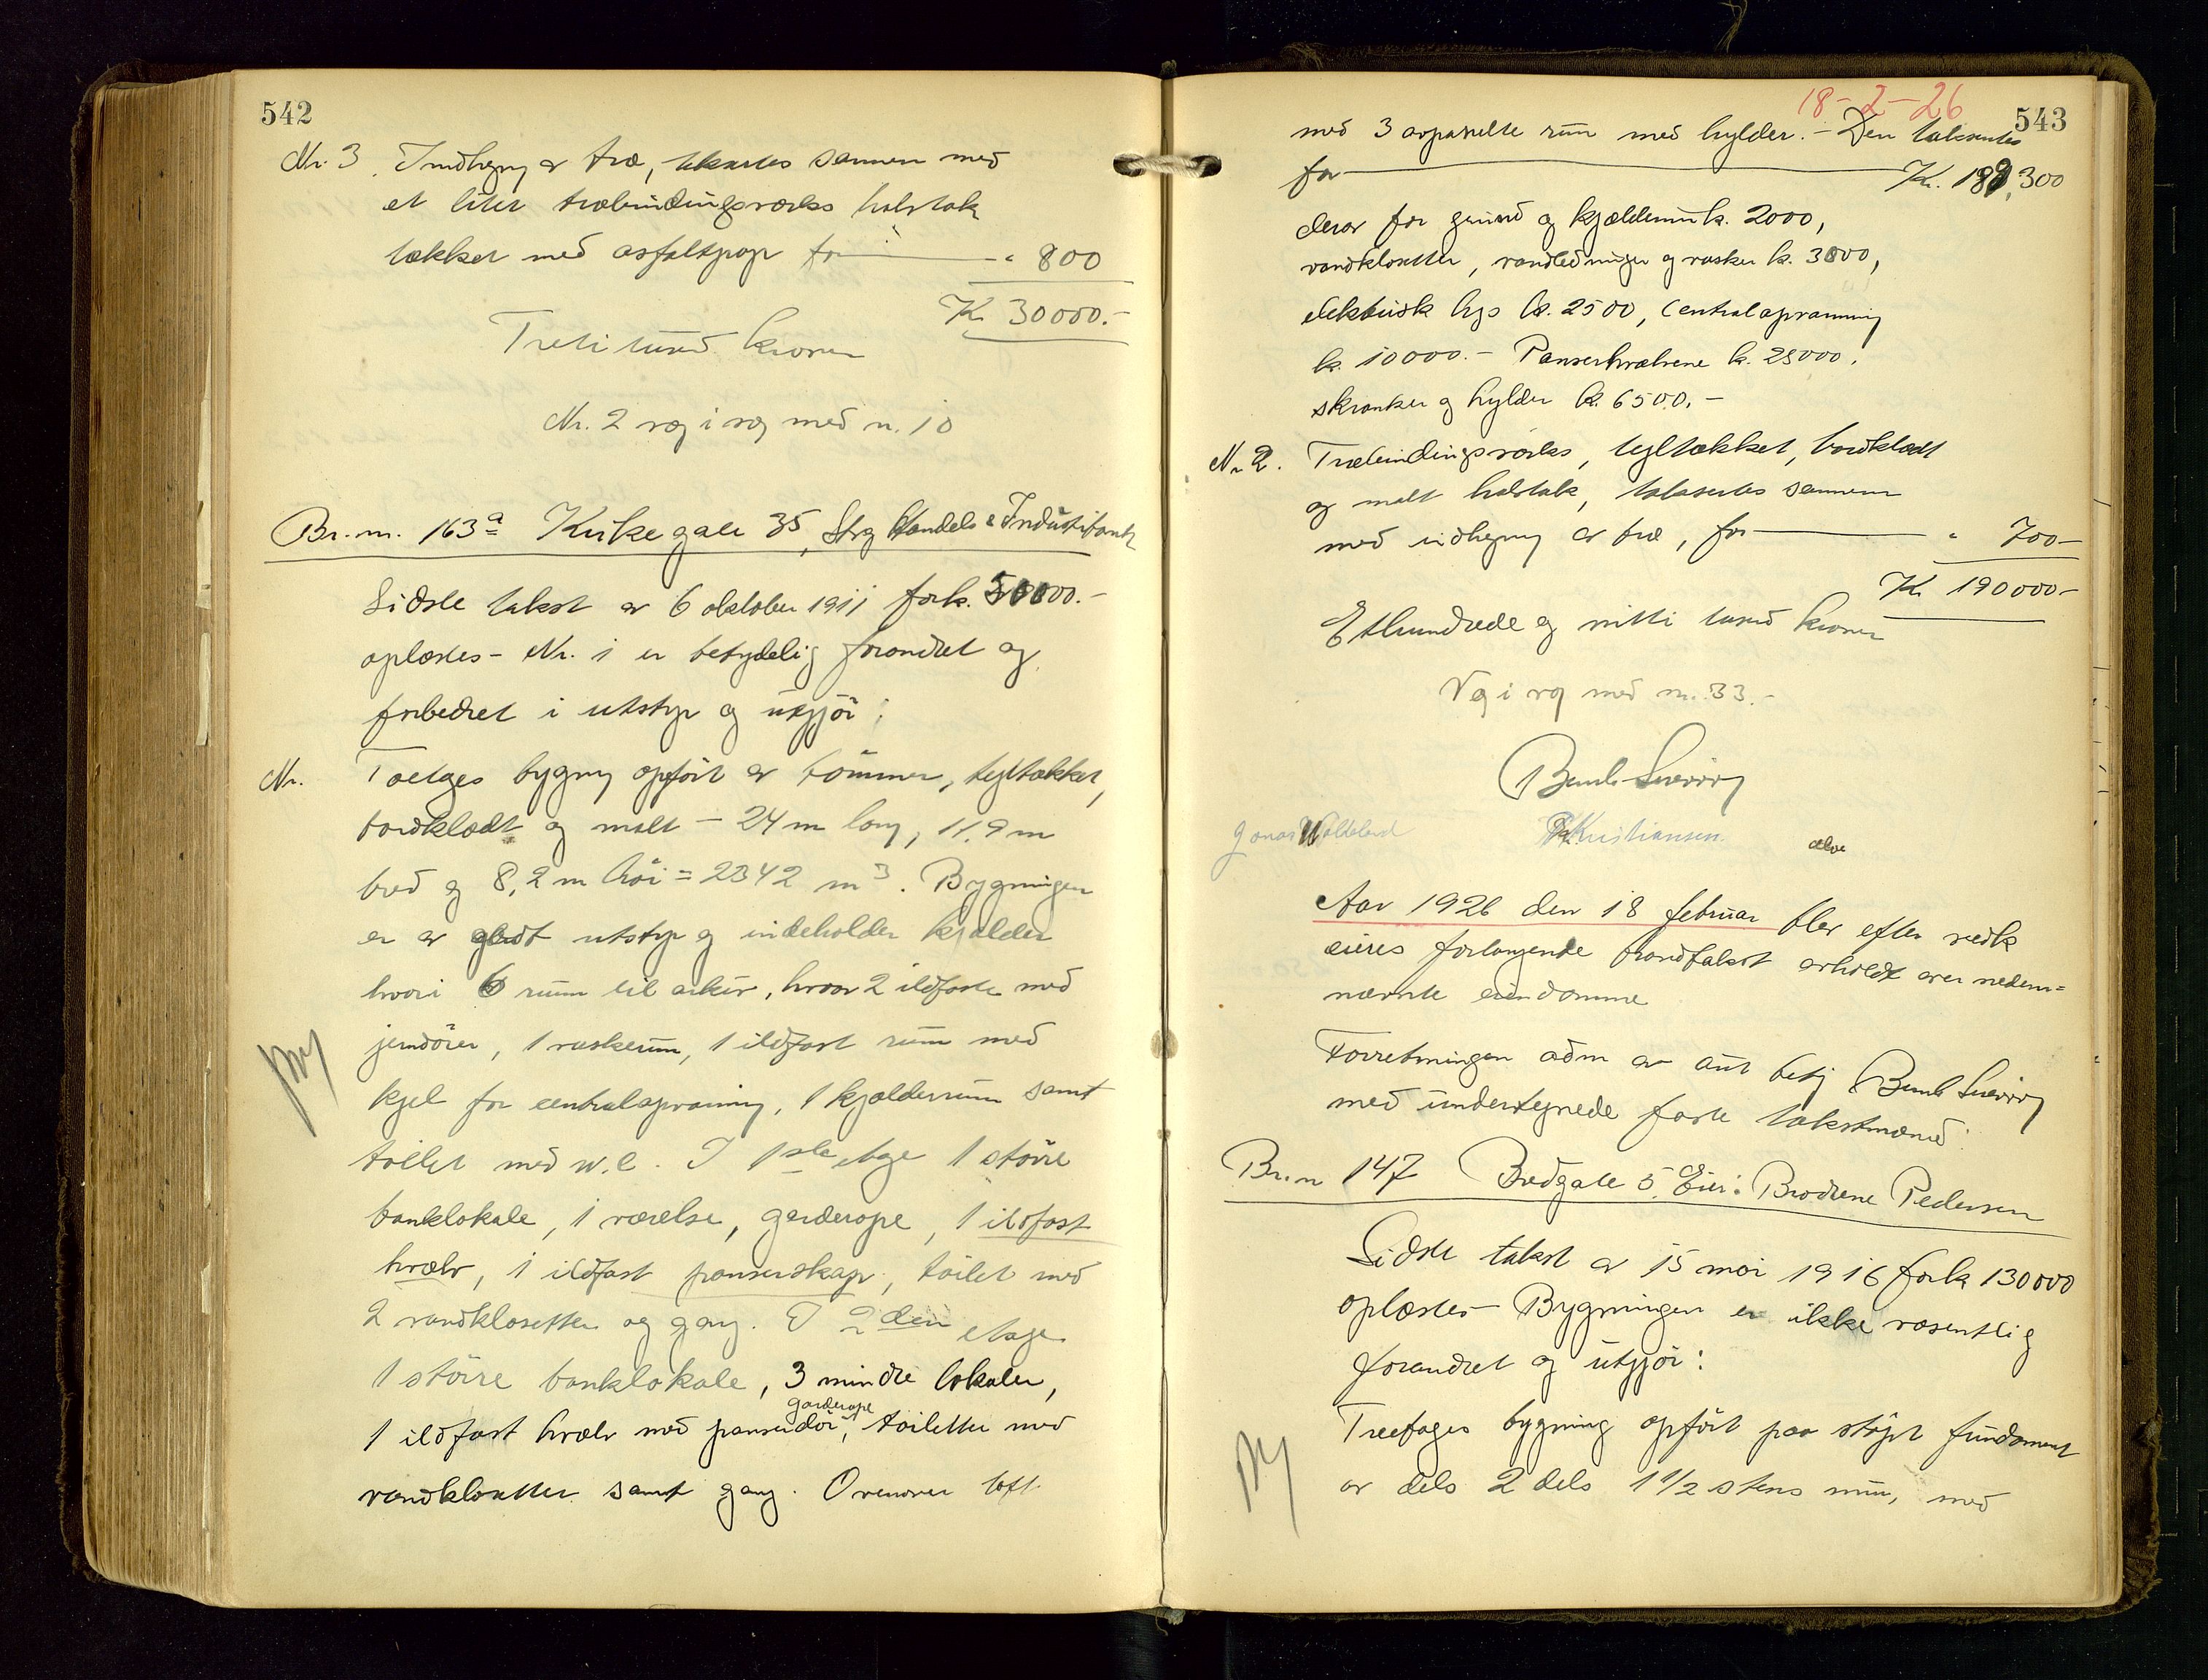 542
Nr. 3. Indhegn av træ, takseres sammen med
et litet træbindingsverks halvtak
tækket med asfaltpap for " 800
K. 30000.-
Treti tusend kroner
Nr. 2 væg i væg med n. 10
Br. nr. 163a Kirkegate 35, Stvg Handels & Industribank
Sidste takst av 6 oktober 1911 for k. 50000.-
oplæstes - Nr. 1 er betydelig forandret og
forbedret i utstyr og utgjör:
Nr. Toetages bygning opfört av tömmer, tegltækket,
bordklædt og malt - 24 m lang, 11,9 m
bred og 8,2 m höi = 2342 m3. Bygningen
er av godt utstyr og indeholder kjælder
hvori 6 rum til arkiv, hvorav 2 ildfaste med
jerndörer, 1 vaskerum, 1 ildfast rum med
kjel for centralopvarming, 1 kjælderrum samt
toilet med w.c. I 1ste etage 1 större
banklokale, 1 værelse, garderope, 1 ildfast
hvælv, 1 ildfast panserskap, toilet med
2 vandklosetter og gang. I 2den etage
1 större banklokale, 3 mindre lokaler,
1 ildfast hvælv med panserdör, garderope, toiletter med
vandklosetter samt gang. Ovenover loft
18-2-26
543
med 3 avpanelte rum med hylder. - Den takseres
for K. 189,300
derav for grund og kjælderrum k. 2000,
vandklosetter, vandledninger og vasker k. 3800,
elektrisk lys k. 2500, Centralopvarming
k. 10000.- Panserhvælvene k. 25000,
skranker og hylder k. 6500.-
Nr 2. Træbindingsverks, tegltækket, bordklædt
og malt halvtak, takseres sammen
med indhegn av træ, for " 700-
K. 190000-
Ethundrede og nitti tusend kroner
Væg i væg med nr. 33.-
Bernh Sverdrup
Jonas Waldeland Kristiansen
Aar 1926 den 18 februar blev efter vedk
eieres forlangende brandtakst avholdt over neden=
nævnte eiendomme
Forretningen adm av aut betj Bernh Sverdrup
med undertegnede faste takstmænd
Br. n 147 Bredgate 5. Eier: Brödrene Pedersen
Sidste takst av 15 mai 1916 for k. 130000
oplæstes - Bygningen er ikke væsentlig
forandret og utgjör:
Treetages bygning opfört paa stöpt fundament
av dels 2 dels 1 1/2 stens mur, med